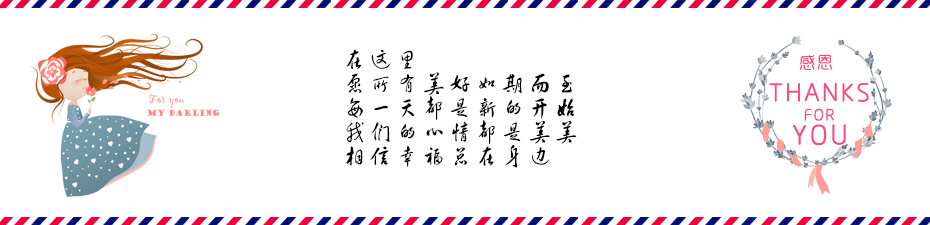 For you
MY DARLING
在这里
愿所有美好如期而至
每一天都是新的开始
我们的心情都是美美
相信幸福总在身边
感恩
THANKS
FOR
YOU